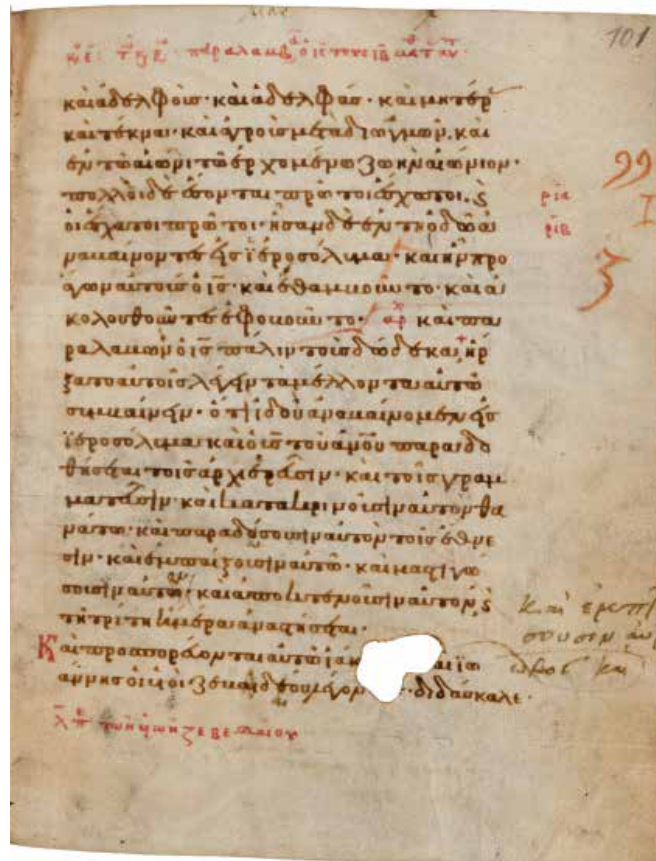 101
καὶ ἀδελφοὺς· καὶ ἀδελφάς· καὶ μητέρ
καὶ τέκνα· καὶ ἀγροὺς μετὰ διωγμῶν. καὶ
ἐν τῶ αἰῶνι τῶ ἐρχομένω ζωὴν αἰώνιον·
πολλοὶ δὲ ἔσονται πρῶτοι ἔσχατοι. ϗ
οἱ ἔσχατοι πρῶτοι· ἦσαν δὲ ἐν τῆ ὁδῶ ἀ
ναβαίνοντες εἰς ϊεροσόλυμα· καὶ ἦν προ
άγων αὐτοὺς ὁ ις· καὶ ἐθαμβοῦντο· καὶ ἀ
κολουθοῦντες ἐφοβοῦντο· αρχ καὶ πα
ραλαβὼν ὁ ις πάλιν τοὺς δώδεκα, ἤρ
ξατο αὐτοῖς λέγειν τὰ μέλλοντα αὐτῶ
συμβαίνειν· ὅτι ἰδοὺ ἀναβαίνομεν εἰς
ϊεροσόλυμα· καὶ ὁ υς τοῦ ἀνου παραδο
θήσεται τοῖς ἀρχιερεῦσιν· καὶ τοῖς γραμ
ματεῦσιν· καὶ κατακρινοῦσιν αὐτὸν θα
νάτω· καὶ παραδώσουσιν αὐτὸν τοῖς ἔθνε
σιν· καὶ ἐμπαίξουσιν αὐτῶ· καὶ μαστιγώ
σουσιν αὐτὸν· καὶ ἀποκτενοῦσιν αὐτὸν, ϗ
τῆ τρίτη ἡμέρα ἀναστήσεται·
Καὶ προσπορεύονται αὐτῶ ϊάκ αι ϊω
άννης οἱ υἱοὶ ζεβεδαίου λέγον ς· διδάσκαλε·
ρια
ριβ
99
I
καὶ ἐμπτύ
σουσιν αὐ
ωβος καὶ
τῶν υἱῶν ζεβεδαίου